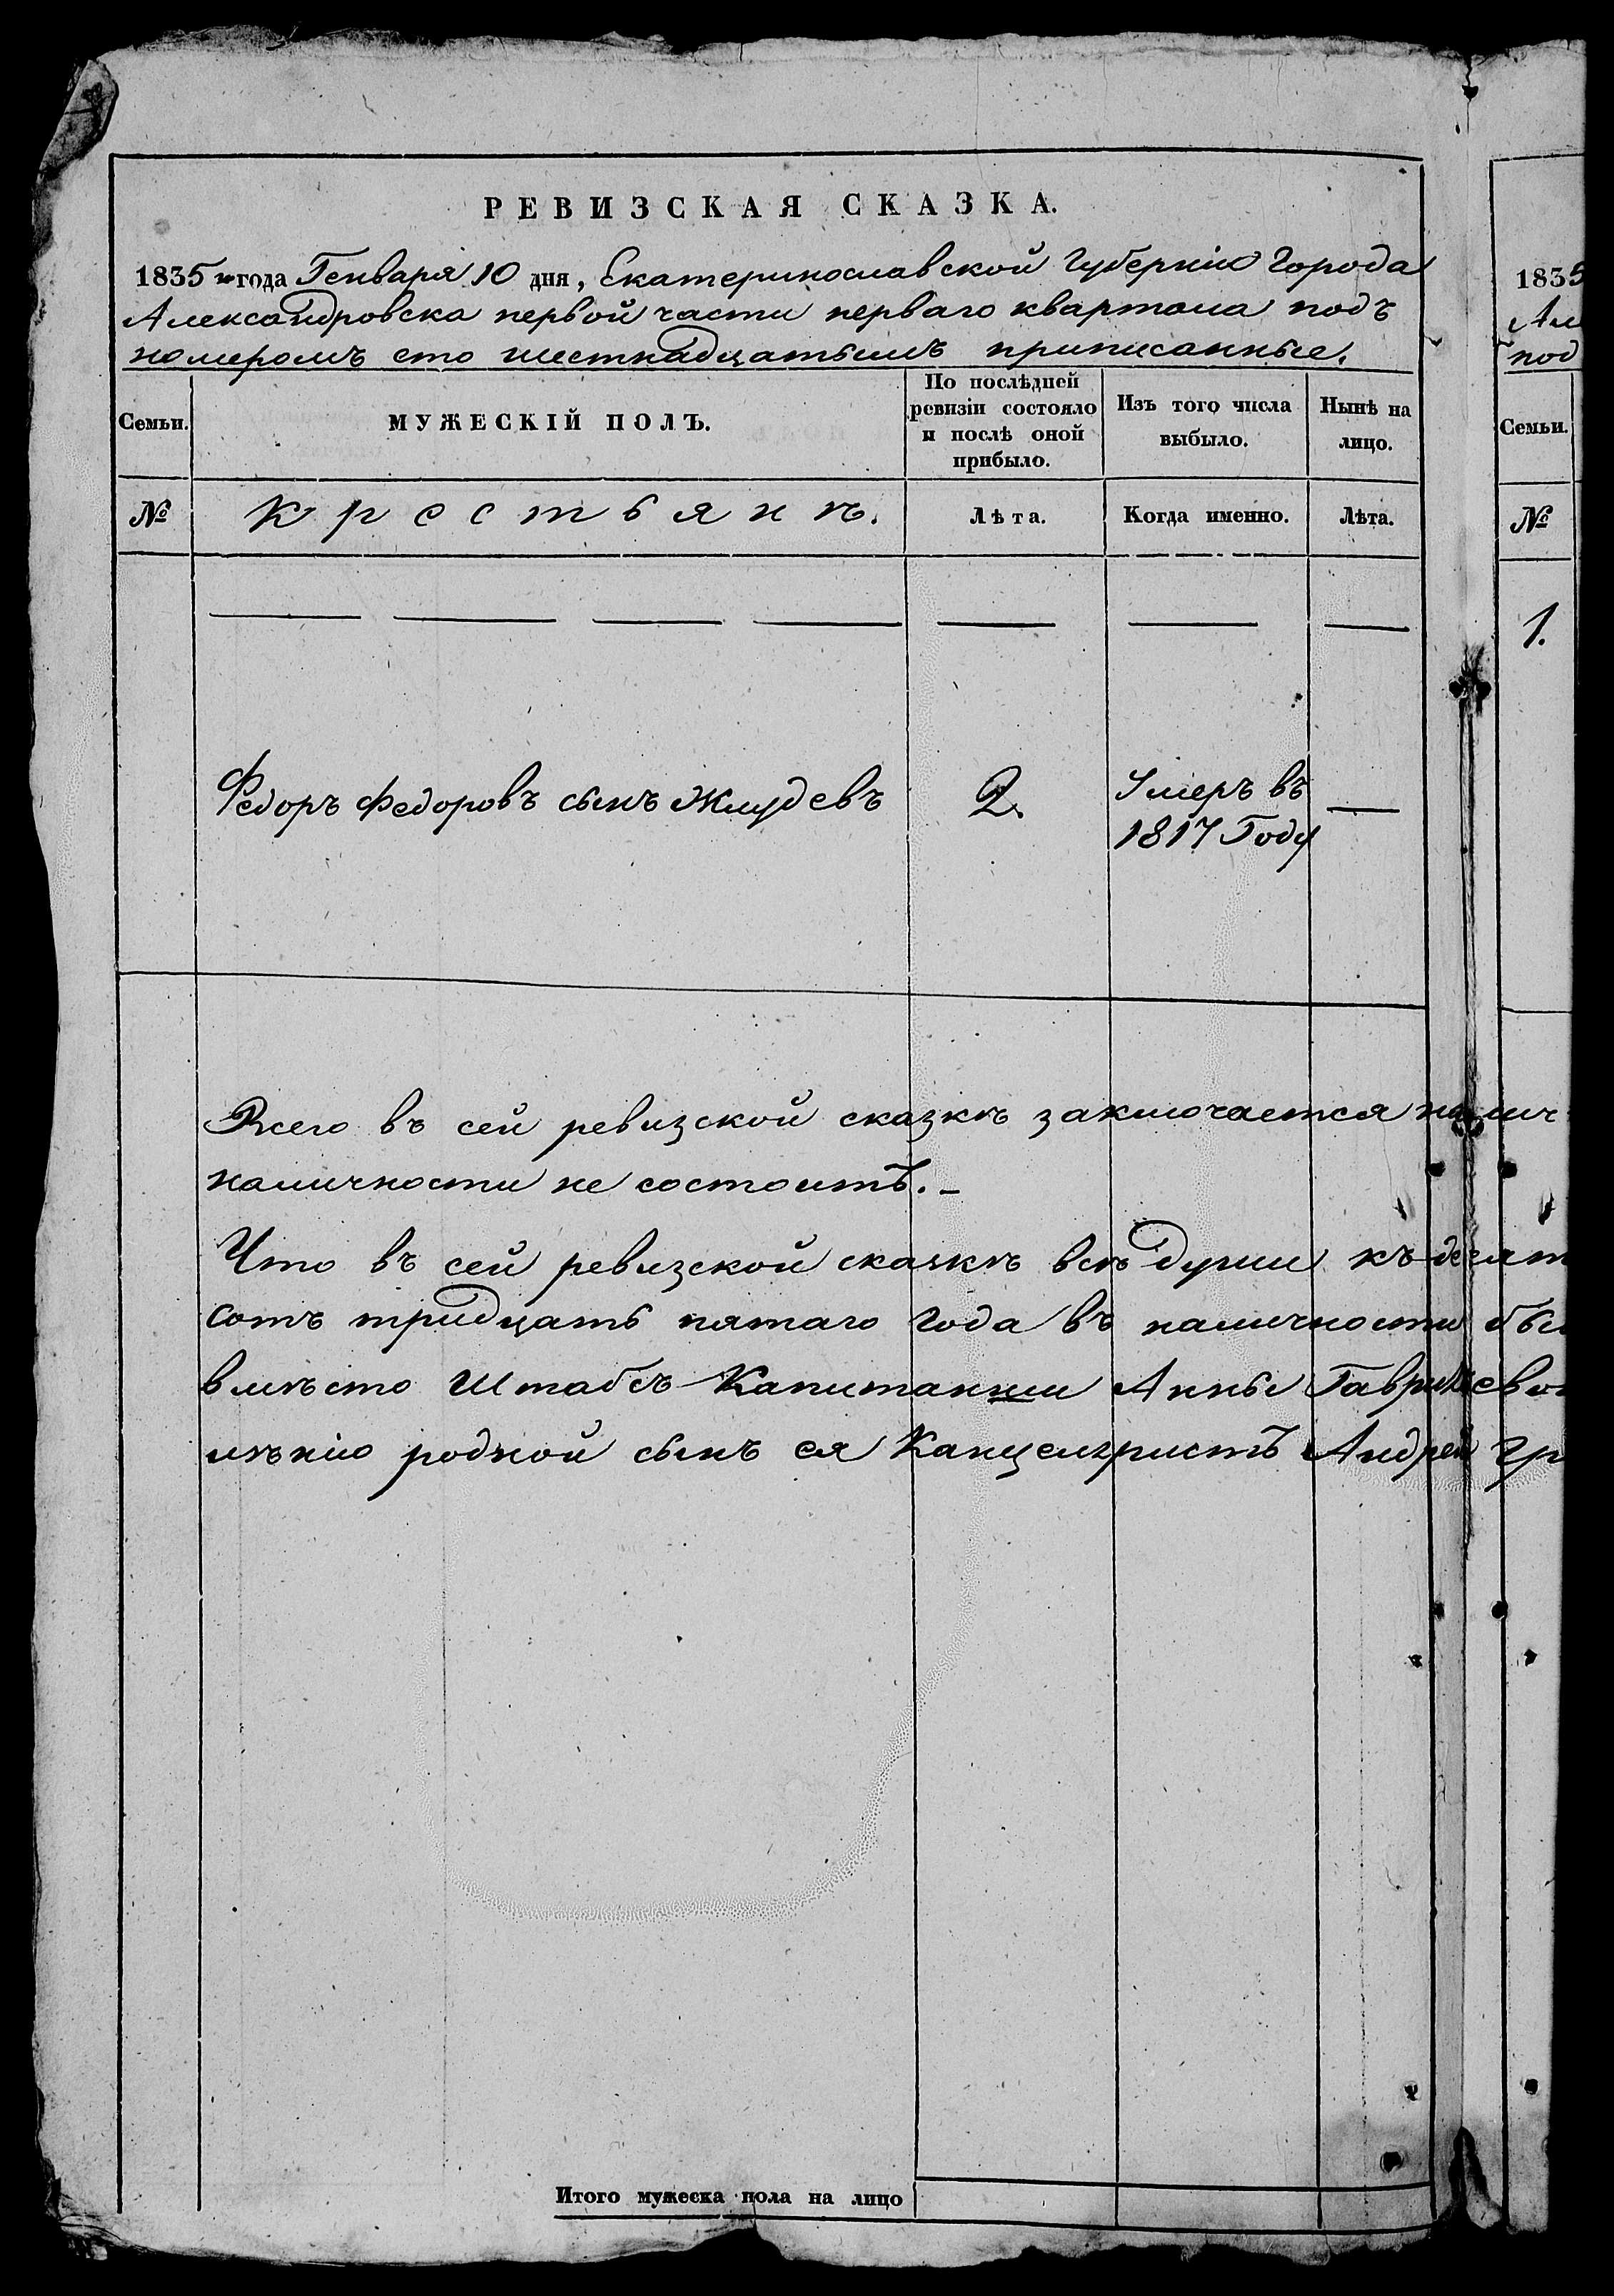 РЕВИЗСКАЯ СКАЗКА.
1835 го года Генваря 10 дня, Екатеринославской Губерніи Города
Александровска первой части перваго квартала подъ
номеромъ сто шестнадцатымъ приписанные.
Семьи.
МУЖЕСКІЙ ПОЛЪ.
По послѣдней ревизіи состояло и послѣ оной прибыло.
Изъ того числа выбыло.
Нынѣ на лицо.
№
Крестьянъ.
Лѣта.
Когда именно.
Лѣта.
Федоръ Федоровъ сынъ Жмудевъ
2.
Умеръ въ
1817 Году
Всего въ сей ревизской сказкѣ заключается налич
наличности не состоитъ.
Что въ сей ревизской сказкѣ всѣ души къ десят
сотъ тридцать пятаго года въ наличности бы
вмѣсто Штабсъ Капитанши Анны Гавриловн
мѣнію родной сынъ ея Канцеляристъ Андрей Гр
Итого мужеска пола на лицо
1835
Ал
под
Семьи.
№
1.